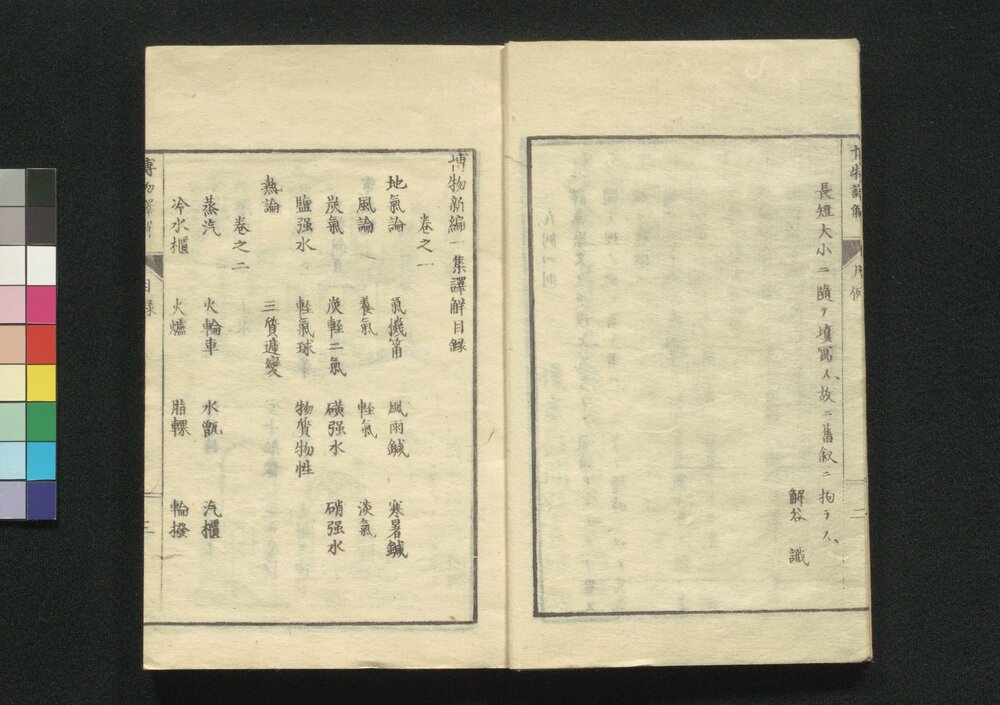 長短大小ニ隨ヲ塡寫ス、故ニ舊叙ニ拘ラス、
解谷 識
博物新編一集譯解目録
卷之一
地氣論 氣機筩 風雨鍼 寒暑鍼
風論 養氣 輕氣 淡氣
炭氣 炭輕二氣 磺强水 硝强水
鹽强水 輕氣球 物質物性
熱論 三質遞變
卷之二
蒸汽 火輪車 水甑 汽櫃
冷水櫃 火爐 脂輠 輪撥
目録